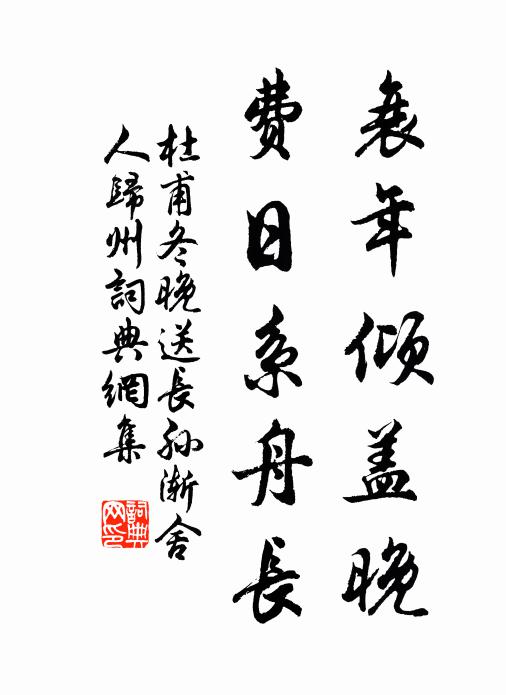 衰年倾盖晚
费日系舟長
杜甫冬晚送長孙渐舍
人歸州詞典網集
詞典网印